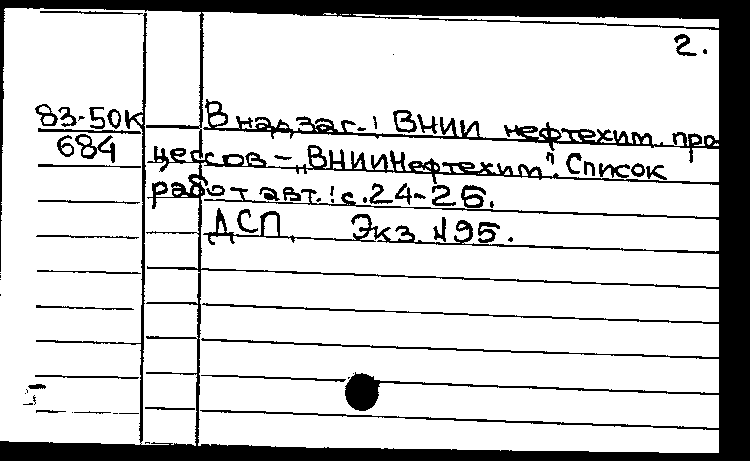 2.
83-50К
684
В надзаг.: ВНИИ нефтехим. про
цессов - "ВНИИНефтехим". Список
работ авт.: с.24-25.
ДСП. Экз. N95.